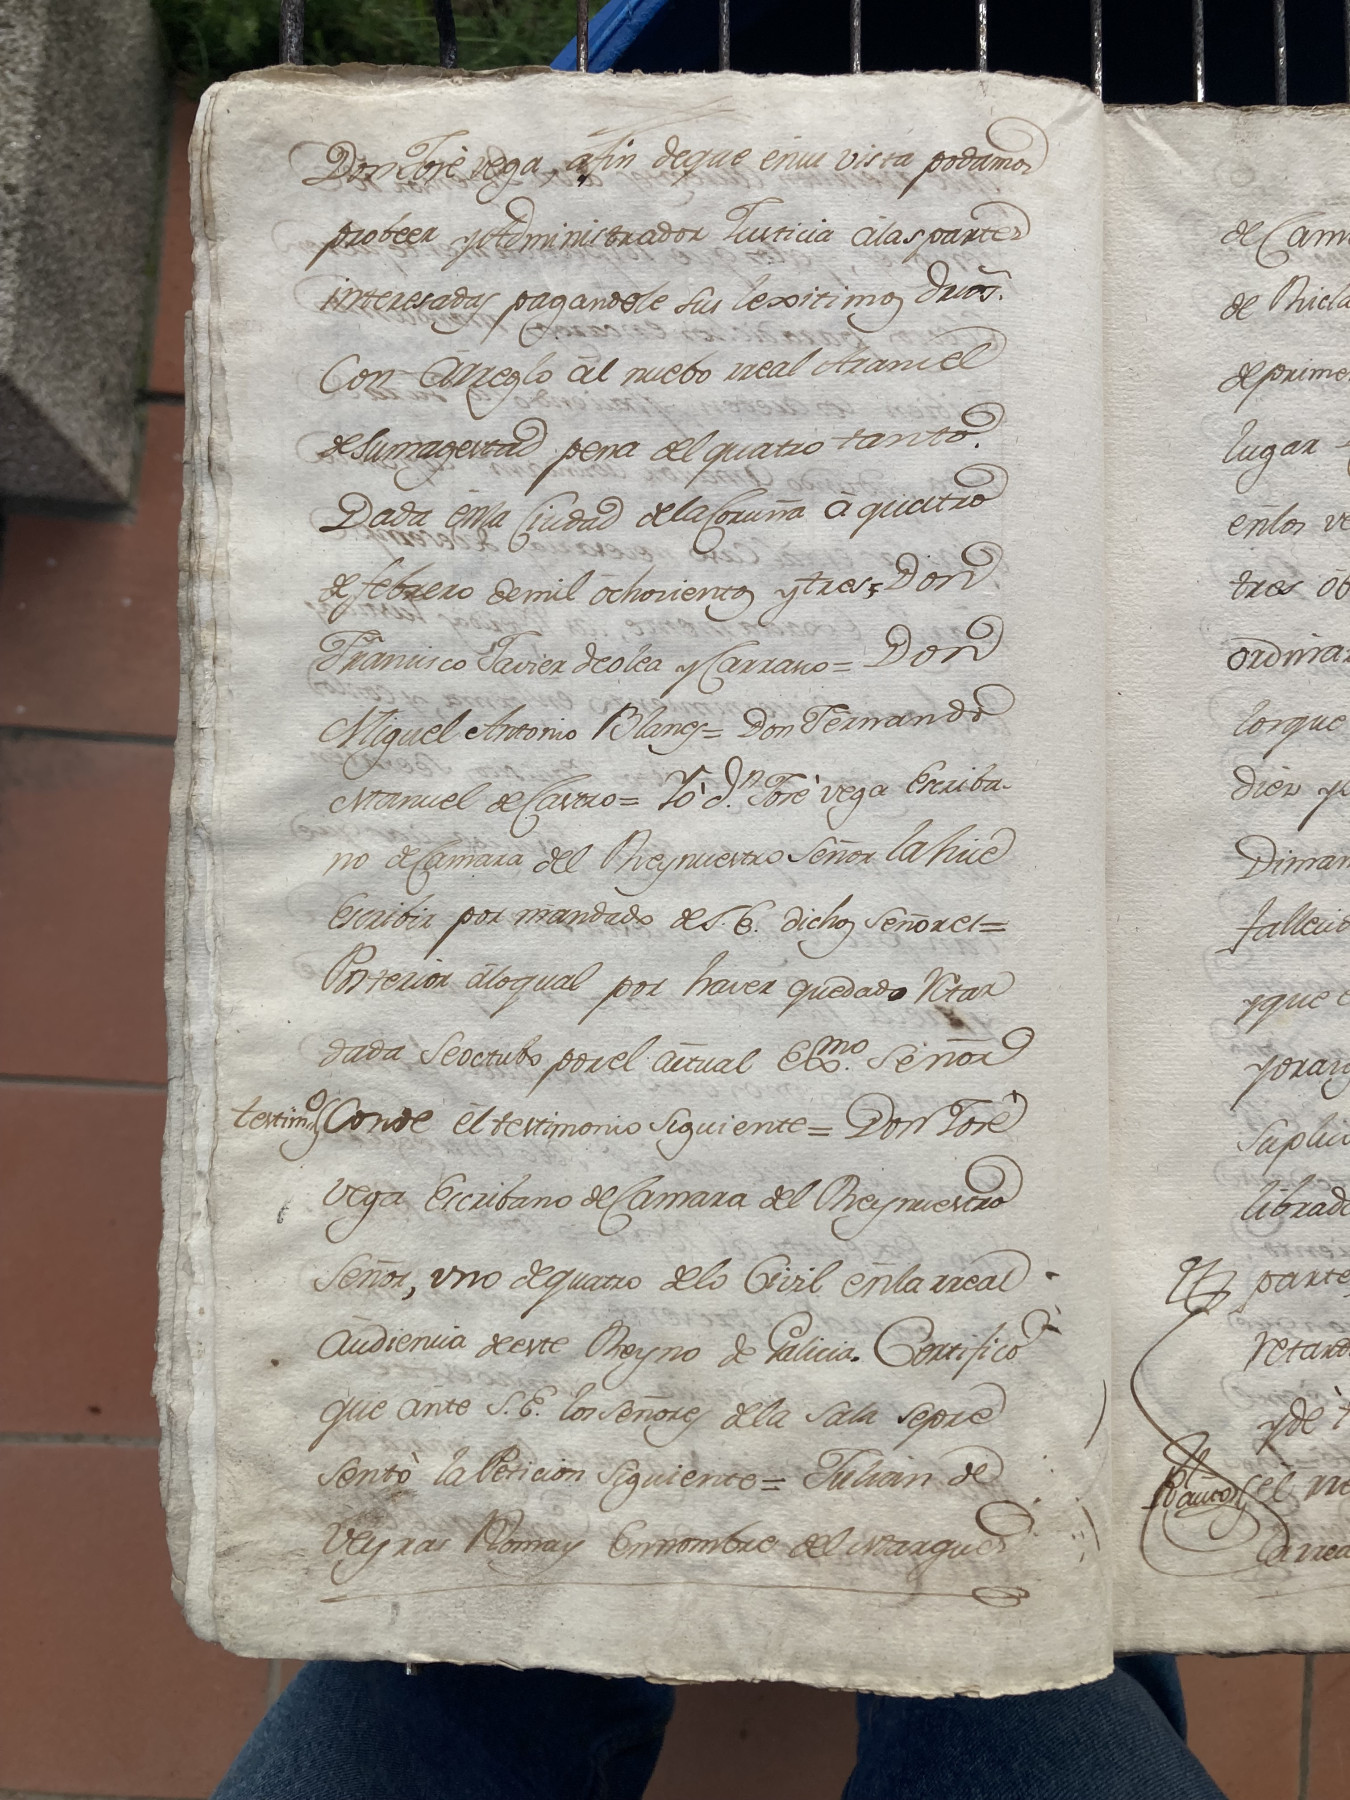 Don Josè vega, afin deque ensu vista podamos
probeer y Administrador Justicia àlas partes
interesadas pagandole sus lexitimos dros.
Con àrreglo àl nuebo rreal Arancel
de su magestad pena del quatro tanto.
Dada ênla Ciudad dela Coruña à quatro
de febrero demil ôchocientos ytres = Don
Francisco Javier deolea y Carrasco = Don
Miguel Antonio Blanes = Don Fernando
Manuel de Castro = Yò d.n Josè vega Escriba-
no de Camara del Rey nuestro Señor la hice
Escribir por mandado de S. E. dichos Señores =
Posterior àloqual por haver quedado Retar
dada Seoctubo porel actual Exmo. Señor
testimo Conde èl testimonio Siguiente = Don Josè
vega Escribano de Camara del Rey nuestro
Señor, vno dequatro delo Civil ênla rreal
Audiencia deeste Reyno de Galicia. Certifico
que ànte S. E. los Señores dela Sala sepre
sentò la Peticion Siguiente = Julian de
Veyras Romay Ennombre del Marques
de Cam
de Ricla
deprime
lugar
ênlos ve
tres
ordinar
lorque
dies y
Diman
falleci
yque
Suplic
librado
parte
retard
yde
Rl auto